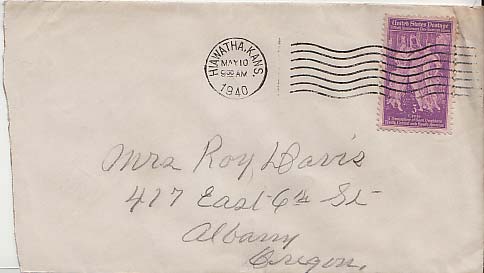 HIAWATHA, KANS.
MAY 10
9:00 AM
1940
United States Postage
3
Cents
Mrs Roy Davis
417 East 6th St
Albany
Oregon,